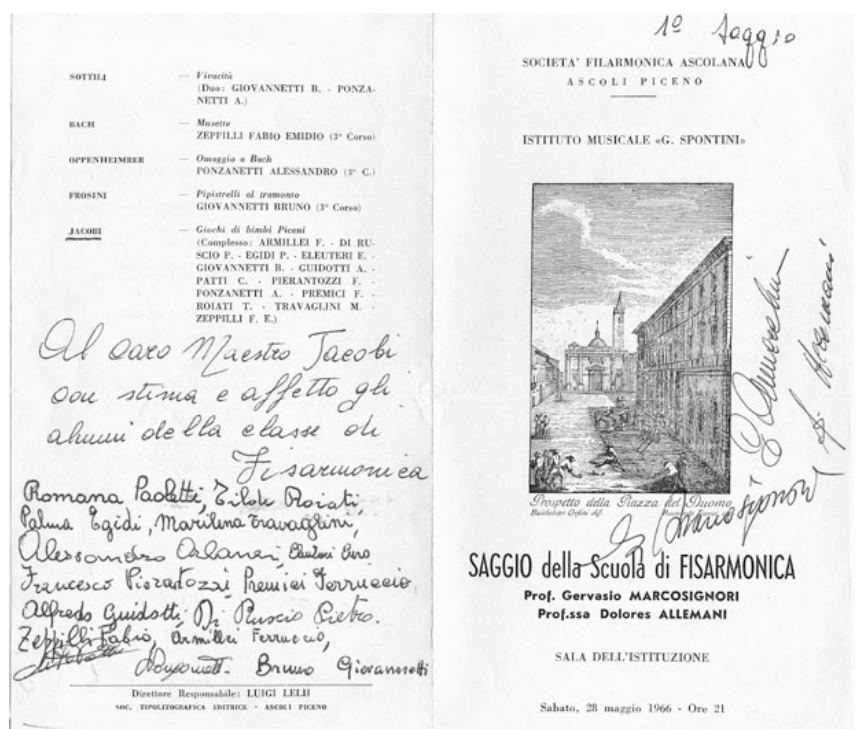 SOTTILI — Vivacità
(Duo: GIOVANNETTI B. - PONZA-
NETTI A.)
BACH — Musette
ZEPPILLI FABIO EMIDIO (3° Corso)
OPPENHEIMRER — Omaggio a Bach
PONZANETTI ALESSANDRO (3° C.)
FROSINI — Pipistrelli al tramonto
GIOVANNETTI BRUNO (3° Corso)
JACOBI — Giochi di bimbi Piceni
(Complesso: ARMILLEI F. - DI RU-
SCIO P. - EGIDI P. - ELEUTERI E. -
GIOVANNETTI B. - GUIDOTTI A. -
PATTI C. - PIERANTOZZI F. -
FONZANETTI A. - PREMICI F. -
ROIATI T. - TRAVAGLINI M. -
ZEPPILLI F. E.)
Al caro Maestro Jacobi
con stima e affetto gli
alunni della classe di
Fisarmonica
Romana Paoletti, Tilde Roiati,
Palma Egidi, Marilena Travaglini,
Alessandro Orlaneri,
Francesco Pierantozzi Premici Ferruccio,
Alfredo Guidotti, Di Ruscio Pietro.
Zeppilli Fabio, Armillei Ferruccio,
Bruno Giovannetti
Direttore Responsabile: LUIGI LELII
SOC. TIPOLITOGRAFICA EDITRICE - ASCOLI PICENO
1° Saggio
SOCIETA' FILARMONICA ASCOLANA
ASCOLI PICENO
ISTITUTO MUSICALE «G. SPONTINI»
Prospetto della Piazza del Duomo
G. Marcosignori
SAGGIO della Scuola di FISARMONICA
Prof. Gervasio MARCOSIGNORI
Prof.ssa Dolores ALLEMANI
SALA DELL'ISTITUZIONE
Sabato, 28 maggio 1966 - Ore 21